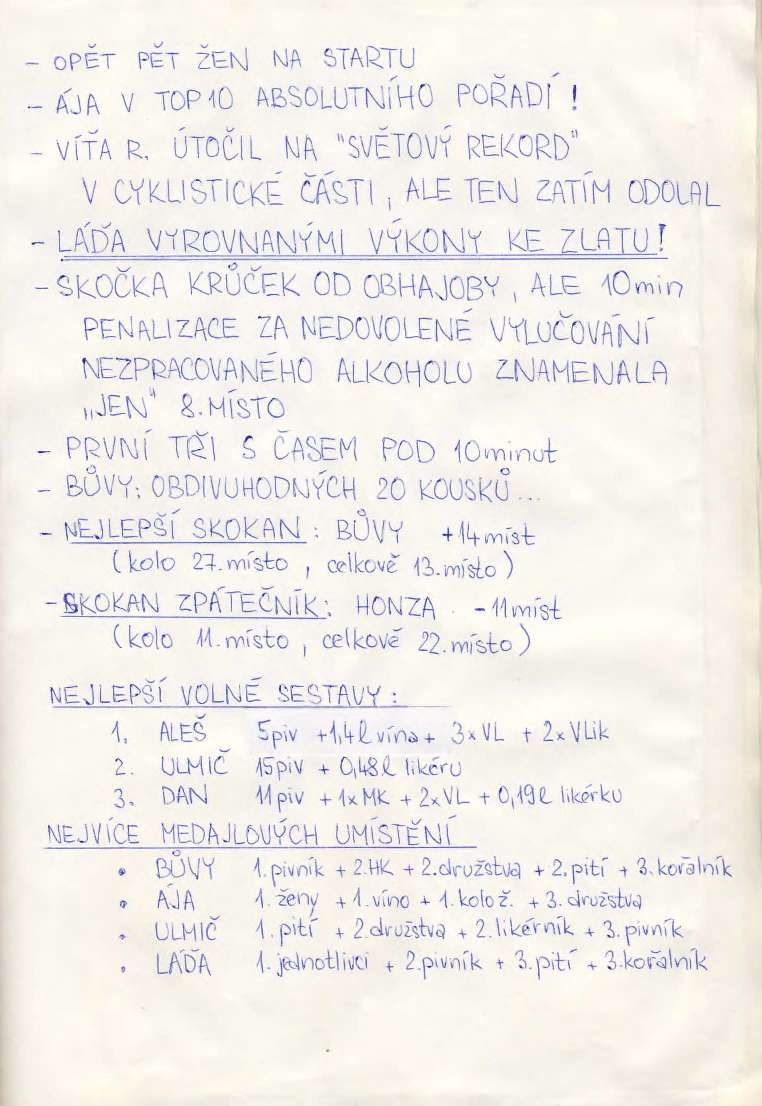 - OPĚT PĚT ŽEN NA STARTU
- ÁJA V TOP 10 ABSOLUTNÍHO POŘADÍ!
- VÍŤA R. ÚTOČIL NA "SVĚTOVÝ REKORD"
V CYKLISTICKÉ ČÁSTI, ALE TEN ZATÍM ODOLAL
- LÁĎA VYROVNANÝMI VÝKONY KE ZLATU!
- SKOČKA KRŮČEK OD OBHAJOBY, ALE 10min
PENALIZACE ZA NEDOVOLENÉ VYLUČOVÁNÍ
NEZPRACOVANÉHO ALKOHOLU ZNAMENALA
„JEN" 8. MÍSTO
- PRVNÍ TŘI S ČASEM POD 10minut
- BŮVY: OBDIVUHODNÝCH 20 KOUSKŮ...
- NEJLEPŠÍ SKOKAN: BŮVY +14 míst
(kolo 27. místo, celkově 13. místo)
- SKOKAN ZPÁTEČNÍK: HONZA - 11 míst
(kolo 11. místo, celkově 22. místo)
NEJLEPŠÍ VOLNÉ SESTAVY:
1. ALEŠ 5piv + 1,4 l vína + 3xVL + 2xVLik
2. ULMIČ 15piv + 0,48 l likéru
3. DAN 11piv + 1xMK + 2xVL + 0,19 l likérku
NEJVÍCE MEDAJLOVÝCH UMÍSTĚNÍ
• BŮVY 1. pivník + 2. HK + 2. družstva + 2. pití + 3. kořalník
• ÁJA 1. ženy + 1. víno + 1. kolo ž. + 3. družstva
• ULMIČ 1. pití + 2. družstva + 2. likérník + 3. pivník
• LÁĎA 1. jednotlivci + 2. pivník + 3. pití + 3. kořalník